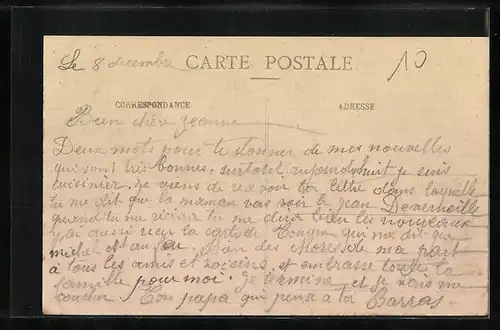 Le 8 decembre CARTE POSTALE 10
CORRESPONDANCE ADRESSE
Bien chère Jeanne
Deux mots pour te donner de mes nouvelles
qui sont très bonnes surtout aujourdhuit je suis
cuisinier. je viens de recevoir ta lettre dans laquelle
tu me dit que la maman vas voir le jean
quand tu me tu me dira bien les nouveaux
j'ai aussi reçu la carte de qui me dit que
est au feu. bien des choses de ma part
à tous les amis et voisins et embrasse toute la
famille pour moi. Je termine et je vais me
coucher Ton papa qui pense a toi Barras